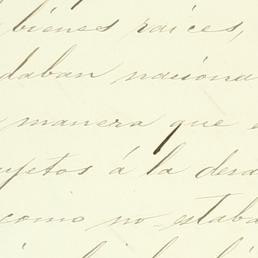 bienes raices,
daban naciona
manera que e
ujetos á la desa
como no estaba